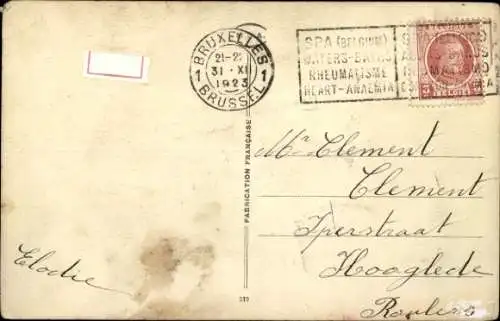 BRUXELLES
21-2
31 XI
1 1
1923
BRUSSEL
SPA (BELGIUM)
WATERS-BATHS
RHEUMATISME
HEART-ANAEMIA
FABRICATION FRANÇAISE
Mr Clement
Clement
Iperstraat
Hooglede
Roulers
Elodie